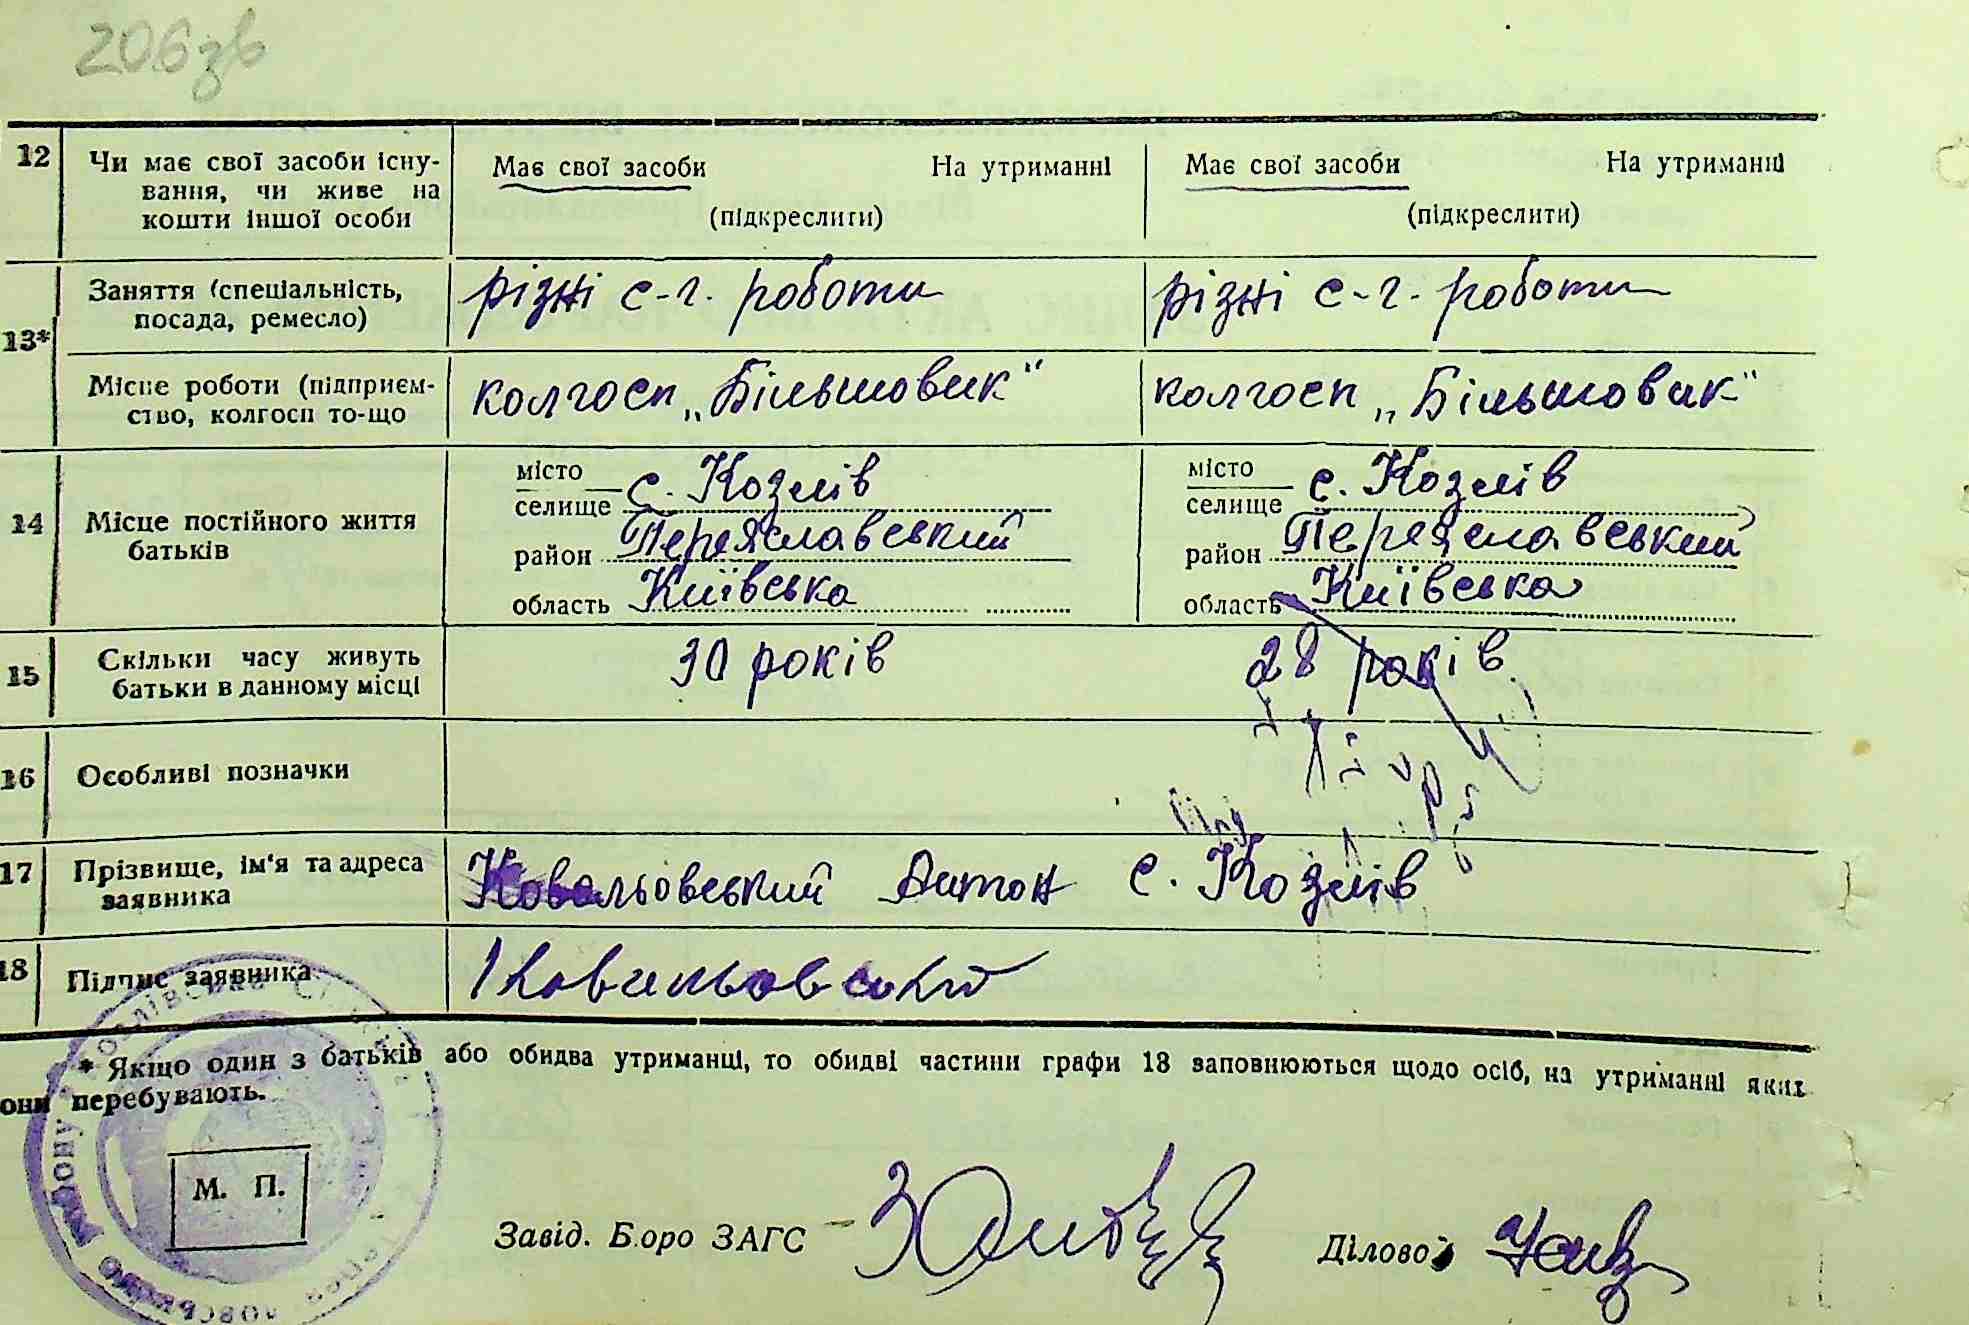 206зв
12 Чи має свої засоби існу-
вання, чи живе на
кошти іншої особи
Має свої засоби На утриманні
(підкреслити)
Має свої засоби На утриманні
(підкреслити)
13* Заняття (спеціальність,
посада, ремесло)
різні с-г. роботи
різні с-г. роботи
Місце роботи (підприєм-
ство, колгосп то-що
колгосп „Більшовик"
колгосп „Більшовик"
14 Місце постійного життя
батьків
місто
селище с. Козлів
район Переяславський
область Київська
місто
селище с. Козлів
район Переяславський
область Київська
15 Скільки часу живуть
батьки в данному місці
30 років
28 років
16 Особливі позначки
17 Прізвище, ім'я та адреса
заявника
Ковальовський Антон с. Козлів
18 Підпис заявника
Ковальовський
* Якщо один з батьків або обидва утриманці, то обидві частини графи 18 заповнюються щодо осіб, на утриманні яких
они перебувають.
М. П.
Завід. Бюро ЗАГС
Діловод